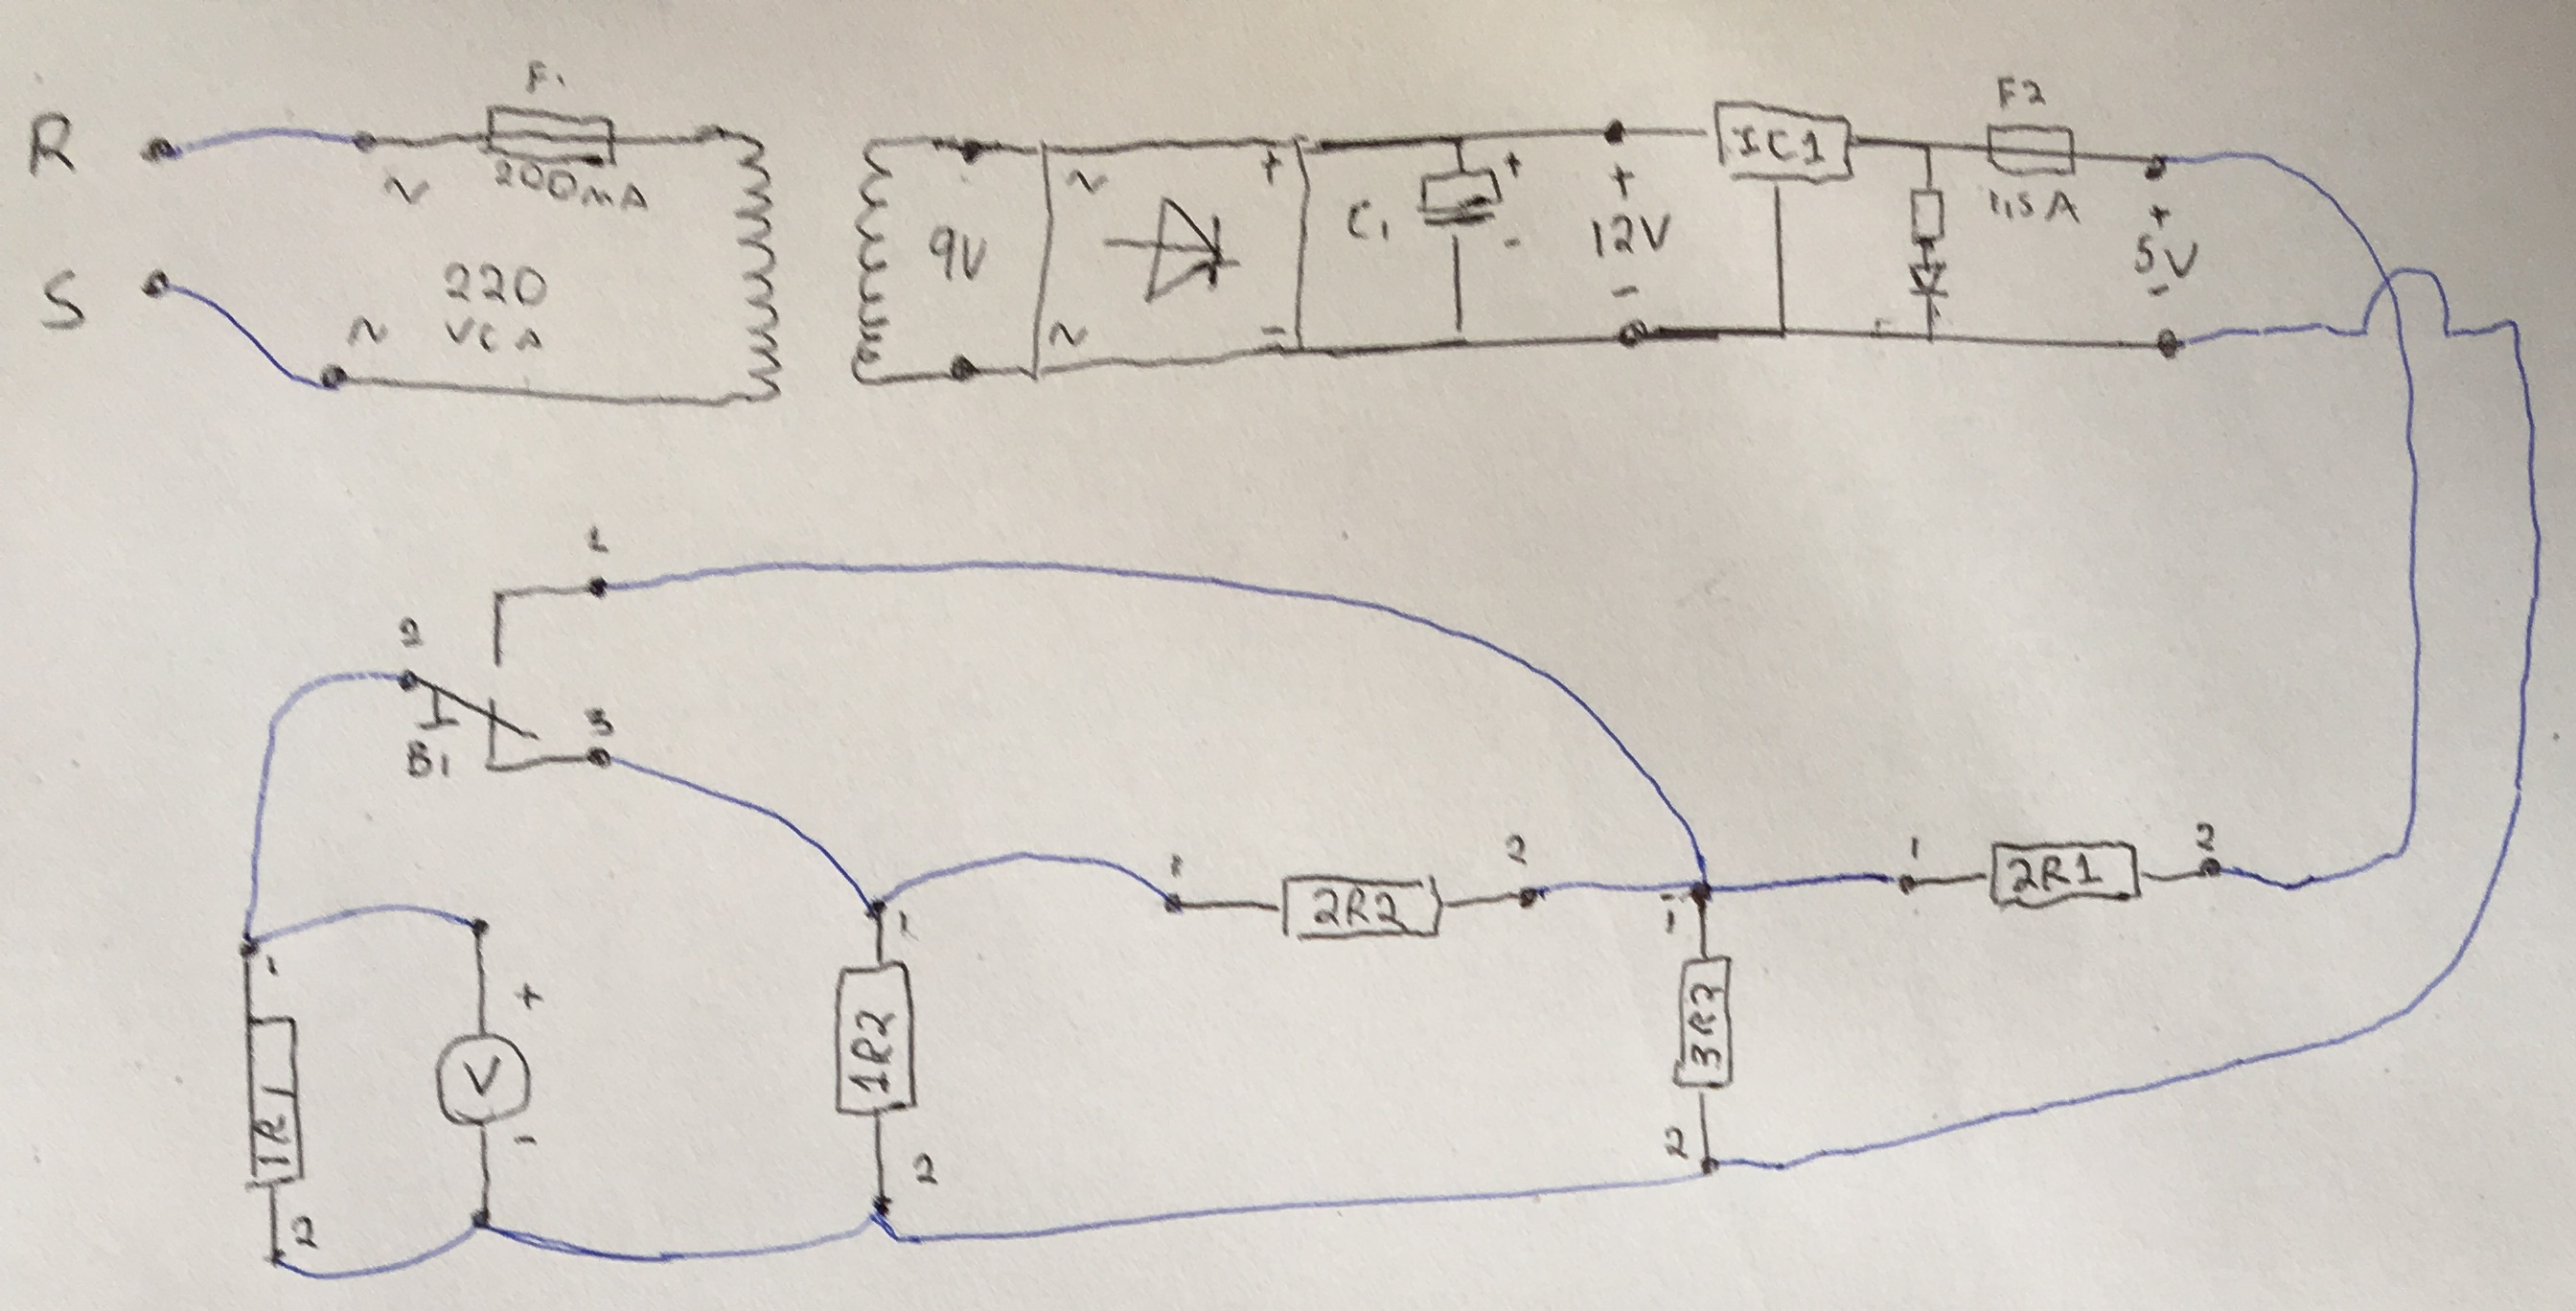 R
F1
200mA
~
S
220
~ VCA
9V
~ +
~ -
C1 + -
+
12V
-
IC1
F2
1,5A
+
5V
-
1
2
B1
3
1
1R1
2
+
V
-
1
1R2
2
1
2R2
2
1
3R2
2
1
2R1
2